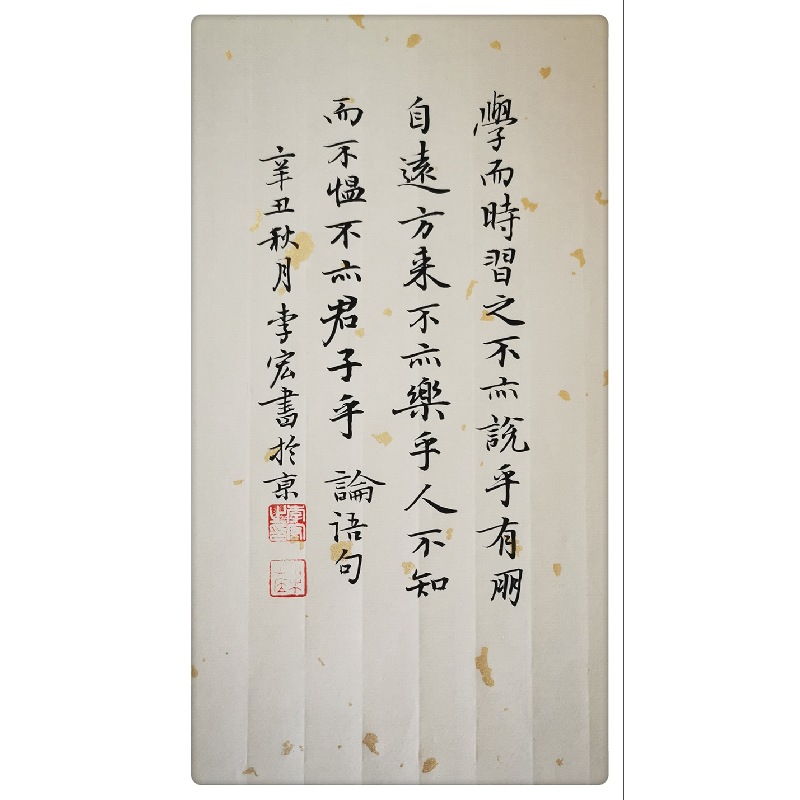 學而時習之不亦說乎有朋
自遠方来不亦樂乎人不知
而不愠不亦君子乎 論语句
辛丑秋月李宏書於京